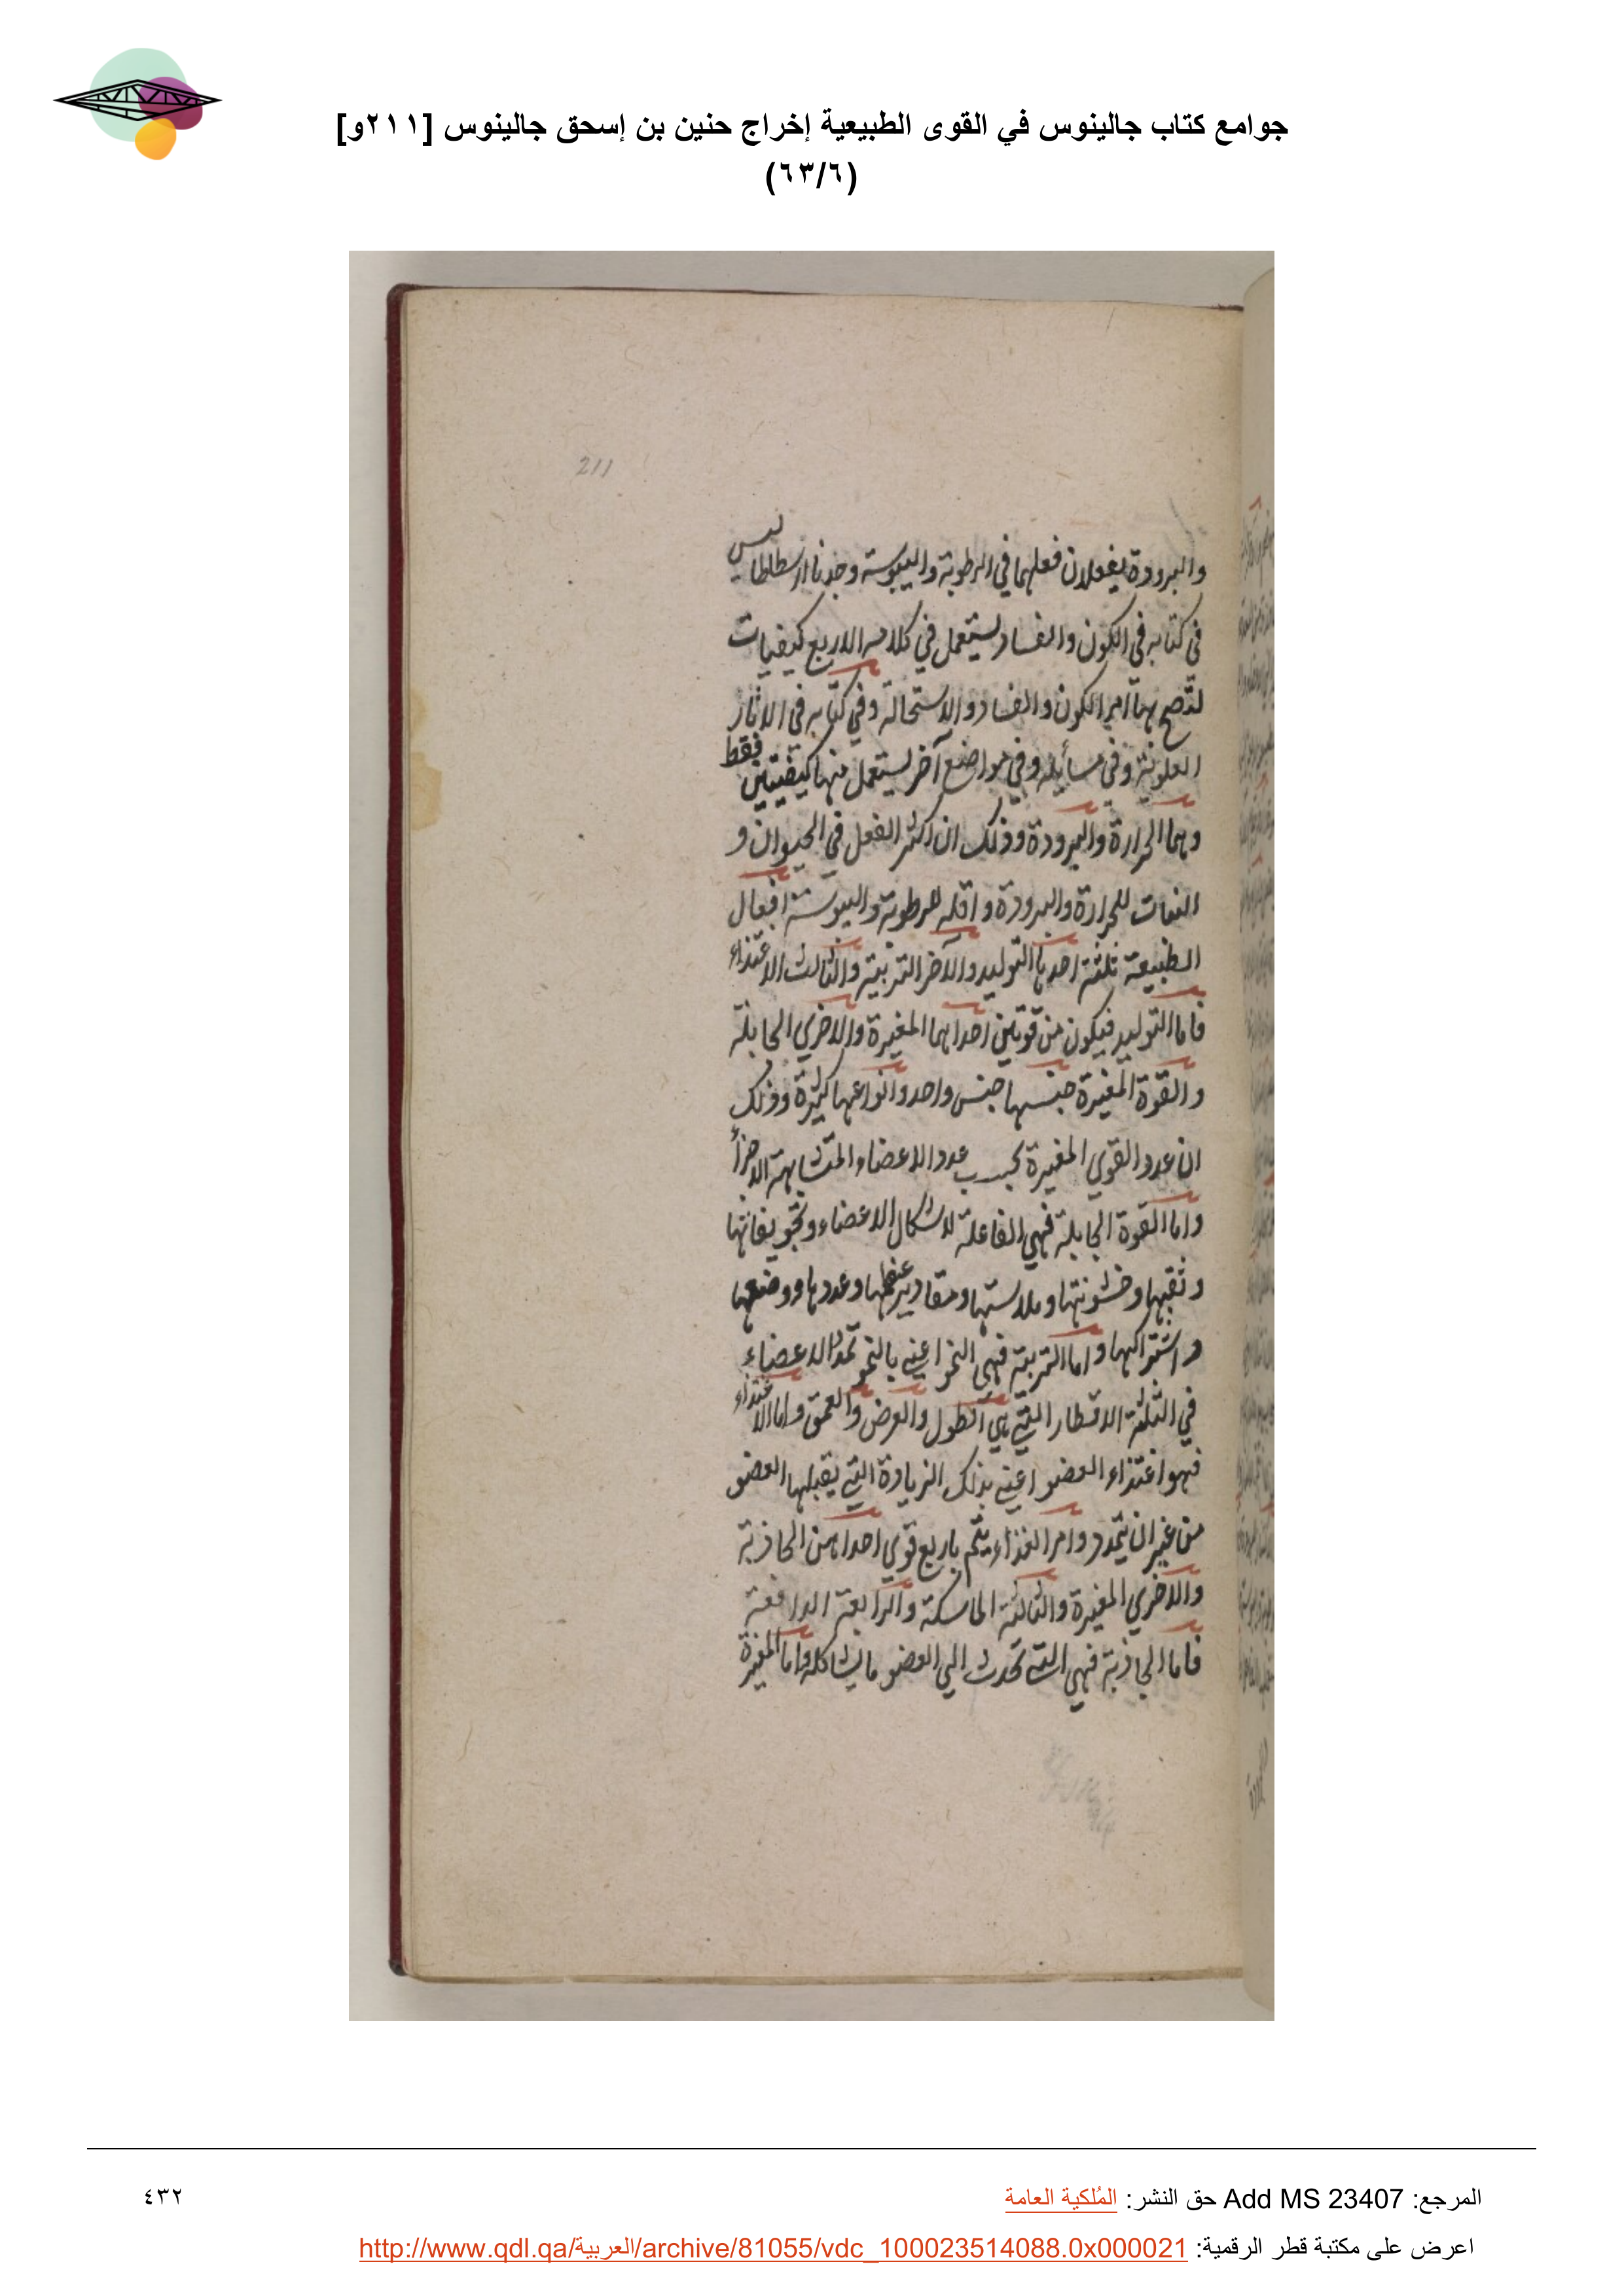 جوامع كتاب جالينوس في القوى الطبيعية إخراج حنين بن إسحق جالينوس [٢١١و]
(٦٣/٦)
211
والبرودة يفعلان فعلهما في الرطوبة واليبوسة وجدنا ارسطاطاليس
في كتابه في الكون والفساد يستعمل في كلامه الاربع كيفيات
لتصح بها امر الكون والفساد والاستحالة وفي كتابه في الاثار
العلوية وفي مسايله وفي مواضع آخر يستعمل منها كيفيتين فقط
وهما الحرارة والبرودة وذلك ان اكثر الفعل في الحيوان و
النبات للحرارة والبرودة واقله للرطوبة واليبوسة افعال
الطبيعة ثلثة احدها التوليد والآخر التربية والثالث الاغتذاء
فاما التوليد فيكون من قوتين احداهما المغيرة والاخري الجابلة
والقوة المغيرة جنسها جنس واحد وانواعها كثيرة وذلك
ان عدد القوي المغيرة بحسب عدد الاعضاء المتشابهة الاجزأ
واما القوة الجابلة فهي الفاعلة لاشكال الاعضاء وتجويفاتها
وثقبها وخشونتها وملاستها ومقادير عظمها وعددها ووضعها
واشتراكها واما التربية فهي النمو اعني بالنمو تمدد الاعضاء
في الثلثة الاقطار التي هي الطول والعرض والعمق واما الاغتذاء
فهو اغتذاء العضو اعني بذلك الزيادة التي يقبلها العضو
من غير ان يتمدد وامر الغذاء يتم باربع قوي احداهن الجاذبة
والاخري المغيرة والثالثة الماسكة والرابعة الدافعة
فاما الجاذبة فهي التي تحدث الي العضو ما يشاكله واما المغيرة
المرجع: Add MS 23407 حق النشر: المُلكية العامة
٤٣٢
اعرض على مكتبة قطر الرقمية: http://www.qdl.qa/العربية/archive/81055/vdc_100023514088.0x000021